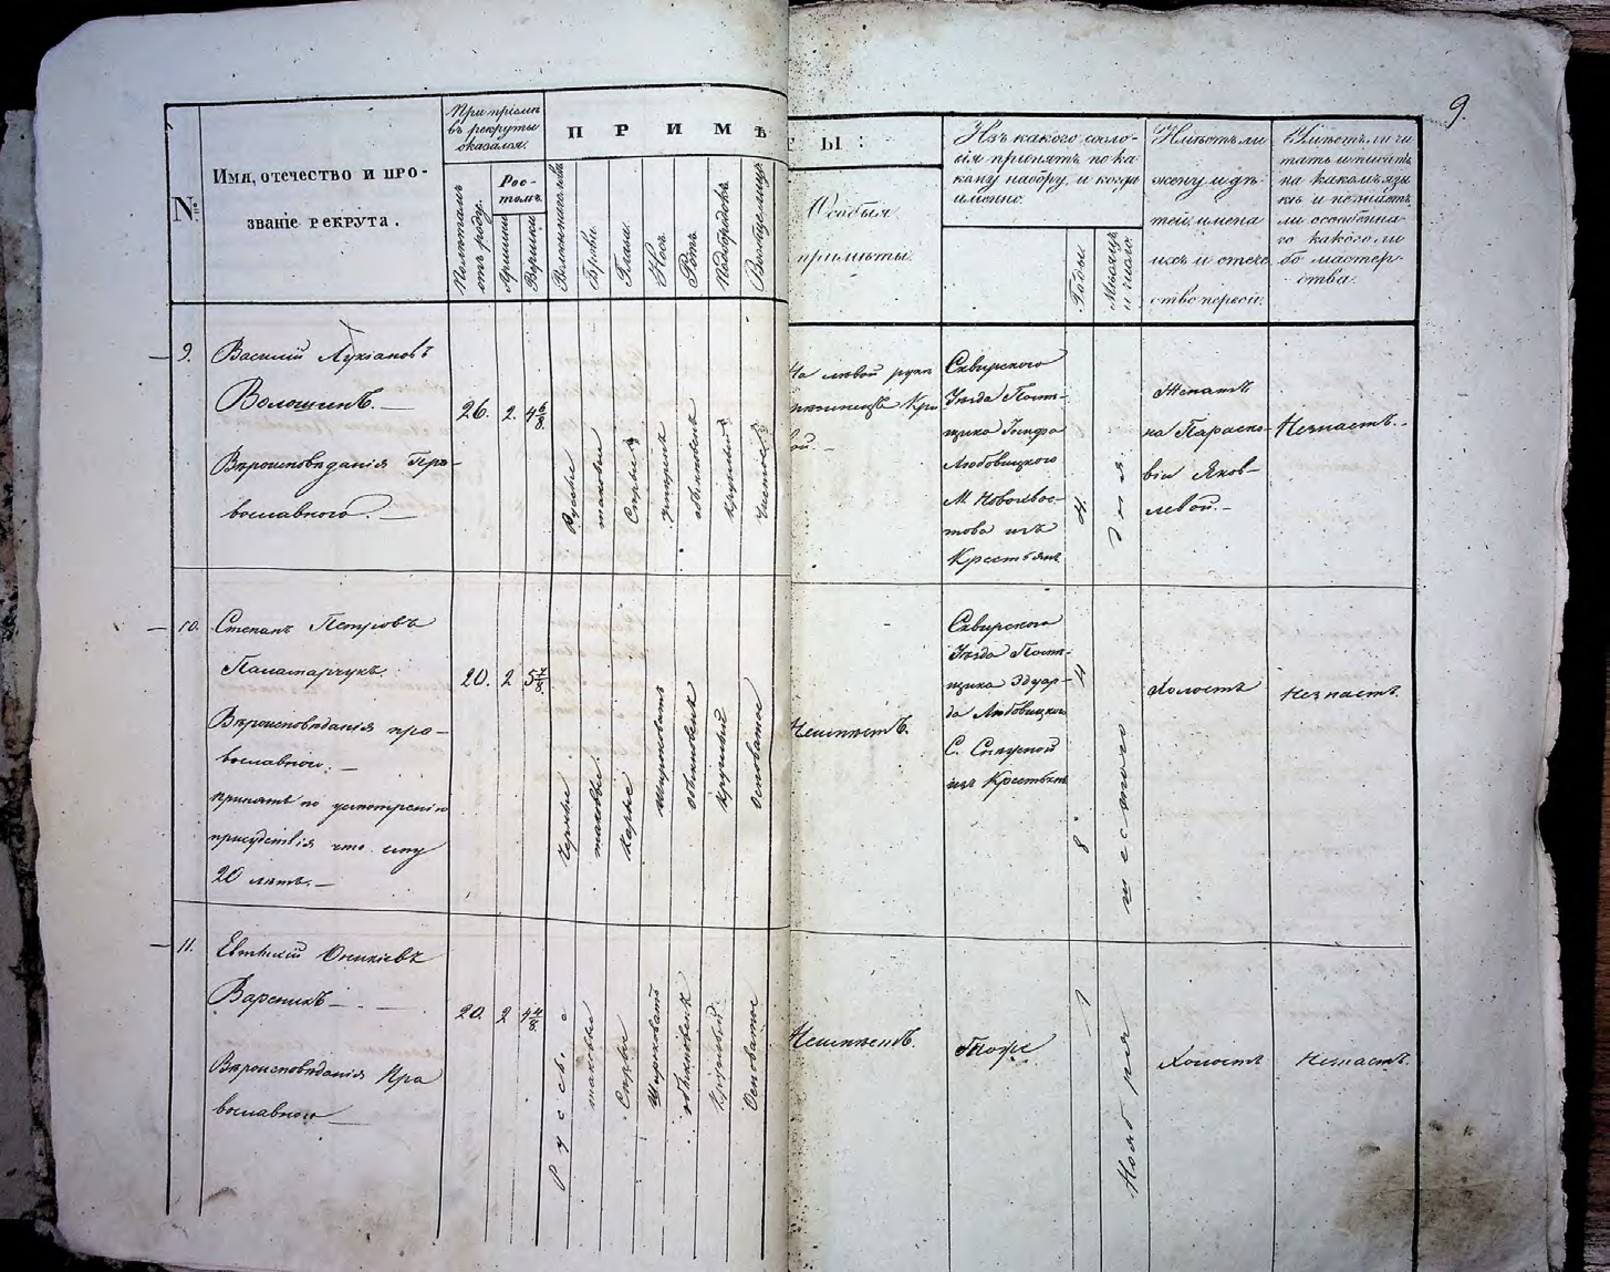 9.
№
Имя, отечество и про-
званіе рекрута.
При пріемѣ
въ рекруты
оказался.
Полѣтамъ
отъ роду.
Рос-
томъ.
Аршины
Вершки
ПРИМѢ
ТЫ:
Брови.
Глаза.
Носъ.
Ротъ.
Подбородокъ
Особыя
примѣты.
Изъ какого сосло-
вія принятъ по ка
кому набору, и когда
именно.
Годы
Мѣсяцъ
и число.
Имѣетъ ли
жену и дѣ-
тей, имена
ихъ и отече
ство первой.
Умѣетъ ли чи
тать и писать
на какомъ язы
кѣ и незнаетъ
ли особенна-
го какого ли
бо мастер-
ства.
9.
Василій Лукіановъ
Волошинъ.
Вѣроисповѣданія Пра-
вославнаго.
26.
2.
4 6/8.
Русые
таковые
Сѣрые
обыкновенъ
круглый
Чистое
На лѣвой руки
Сквирского
Уѣзда Помѣ-
щика Іосифа
Любовицкого
М. Новохвос-
това изъ
Крестьянъ
Женатъ
на Параско-
віи Яков-
левой.
Незнаетъ.
10.
Степанъ Петровъ
Паламарчукъ.
Вѣроисповѣданія пра-
вославного.
принятъ по усмотренію
присудствія что ему
20 лѣтъ.
20.
2
5 7/8.
Черные
таковые
Каріе
широковатъ
обыкновенъ
круглый
Осповатое
Неимѣетъ.
Сквирского
Уѣзда Помѣ-
щика Эдуар-
да Любовицкого
изъ Крестьянъ
1848
Холостъ
Незнаетъ.
11.
Евтихій Оникіевъ
Вареникъ
Вѣроисповѣданія Пра
вославного
20.
2
4 4/8.
Русые
таковые
Сѣрые
Широковатъ
обыкновенъ
Круглый
Осповатое
Неимѣетъ.
Тоже
Ноября шестого дня
Холостъ
Незнаетъ.